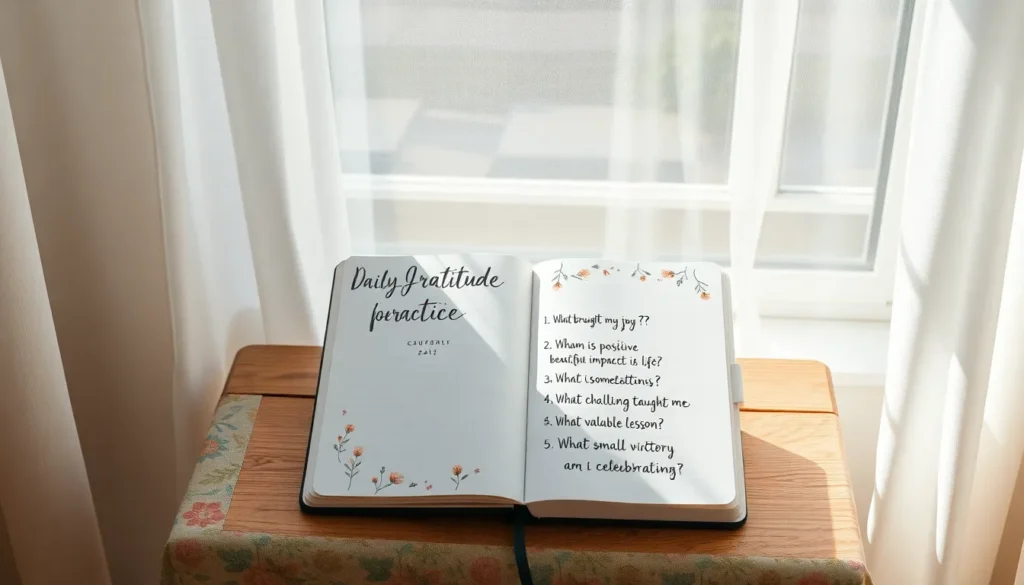 Daily Gratitude
practice
1. What brught my joy ??
2. Wham is positive
beautiful impact is life?
3. What
4. What challing taught me
5. What valable lesson?
5. What small victory
am i celebbrating?